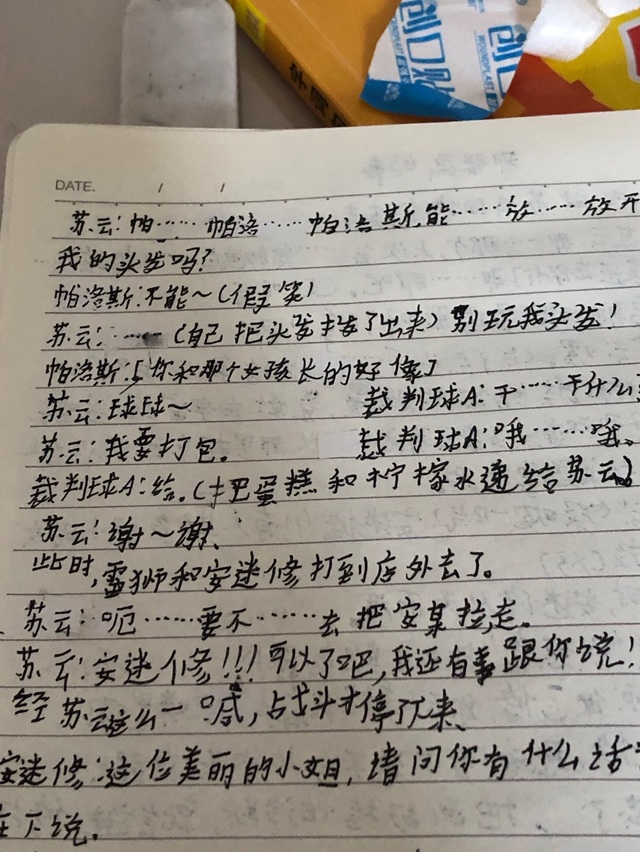 创口贴
WOUNDPLAST
创口
DATE. / /
苏云:帕…… 帕洛…… 帕洛斯,能…… 放…… 放开
我的头发吗?
帕洛斯:不能~(假笑)
苏云:……(自己把头发拔了出来)别玩我头发!
帕洛斯:[你和那个女孩长的好像]
苏云:球球~ 裁判球A:干……干什么
苏云:我要打包。 裁判球A:哦……哦。
裁判球A:给。(把蛋糕和柠檬水递给苏云)
苏云:谢~谢、
此时,雷狮和安迷修打到店外去了。
苏云:呃……要不……去把安某拉走。
苏云:安迷修!!!可以了吧,我还有事跟你说!
经苏云这么一喊,战斗才停下来、
安迷修:这位美丽的小姐,请问你有什么话
在下说.